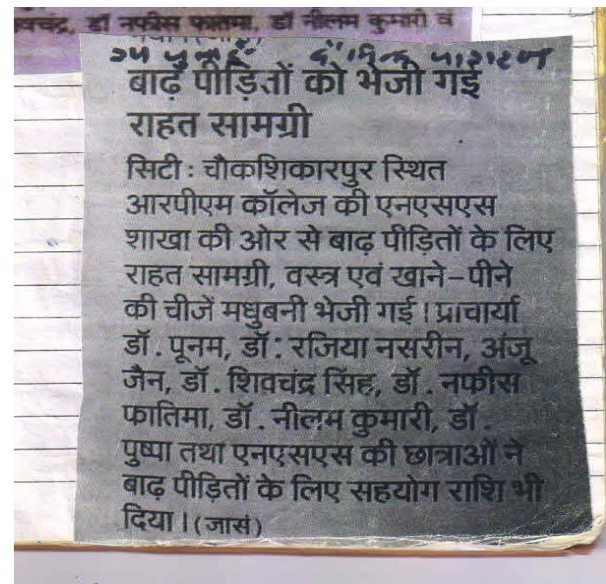 वचंद्र, डॉ नफीस फातिमा, डॉ नीलम कुमारी व
दैनिक जागरण
बाढ़ पीड़ितों को भेजी गई
राहत सामग्री
सिटी : चौकशिकारपुर स्थित
आरपीएम कॉलेज की एनएसएस
शाखा की ओर से बाढ़ पीड़ितों के लिए
राहत सामग्री, वस्त्र एवं खाने-पीने
की चीजें मधुबनी भेजी गई । प्राचार्या
डॉ. पूनम, डॉ. रजिया नसरीन, अंजू
जैन, डॉ. शिवचंद्र सिंह, डॉ. नफीस
फातिमा, डॉ. नीलम कुमारी, डॉ.
पुष्पा तथा एनएसएस की छात्राओं ने
बाढ़ पीड़ितों के लिए सहयोग राशि भी
दिया । (जासं)